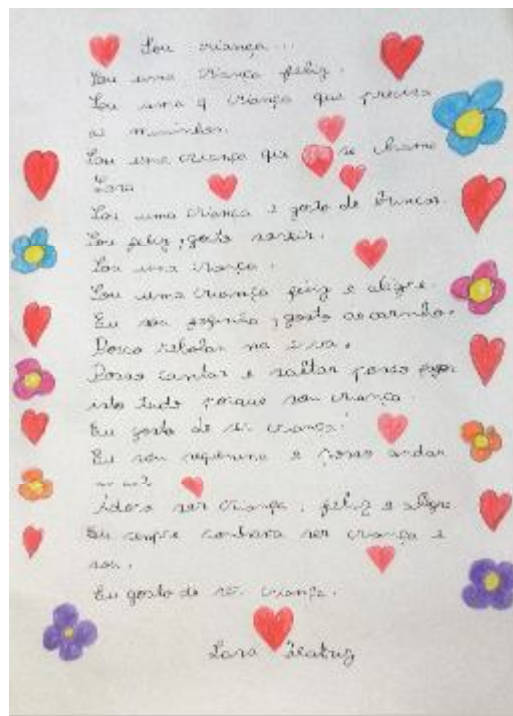 Sou criança...
Sou uma criança feliz.
Sou uma criança que precisa
de miminhos.
Sou uma criança que se chama
Lara
Sou uma criança e gosto de brincar.
Sou feliz, gosto sorrir.
Sou uma criança.
Sou uma criança feliz e alegre.
Eu sou fofinha, gosto de carinho.
Posso rebolar na relva.
Posso cantar e saltar posso fazer
isto tudo porque sou criança.
Eu gosto de ser criança!
Eu sou pequenina e posso andar
Adoro ser criança, feliz e alegre
Eu sempre ser criança e
sou.
Eu gosto de ser criança.
Lara Beatriz